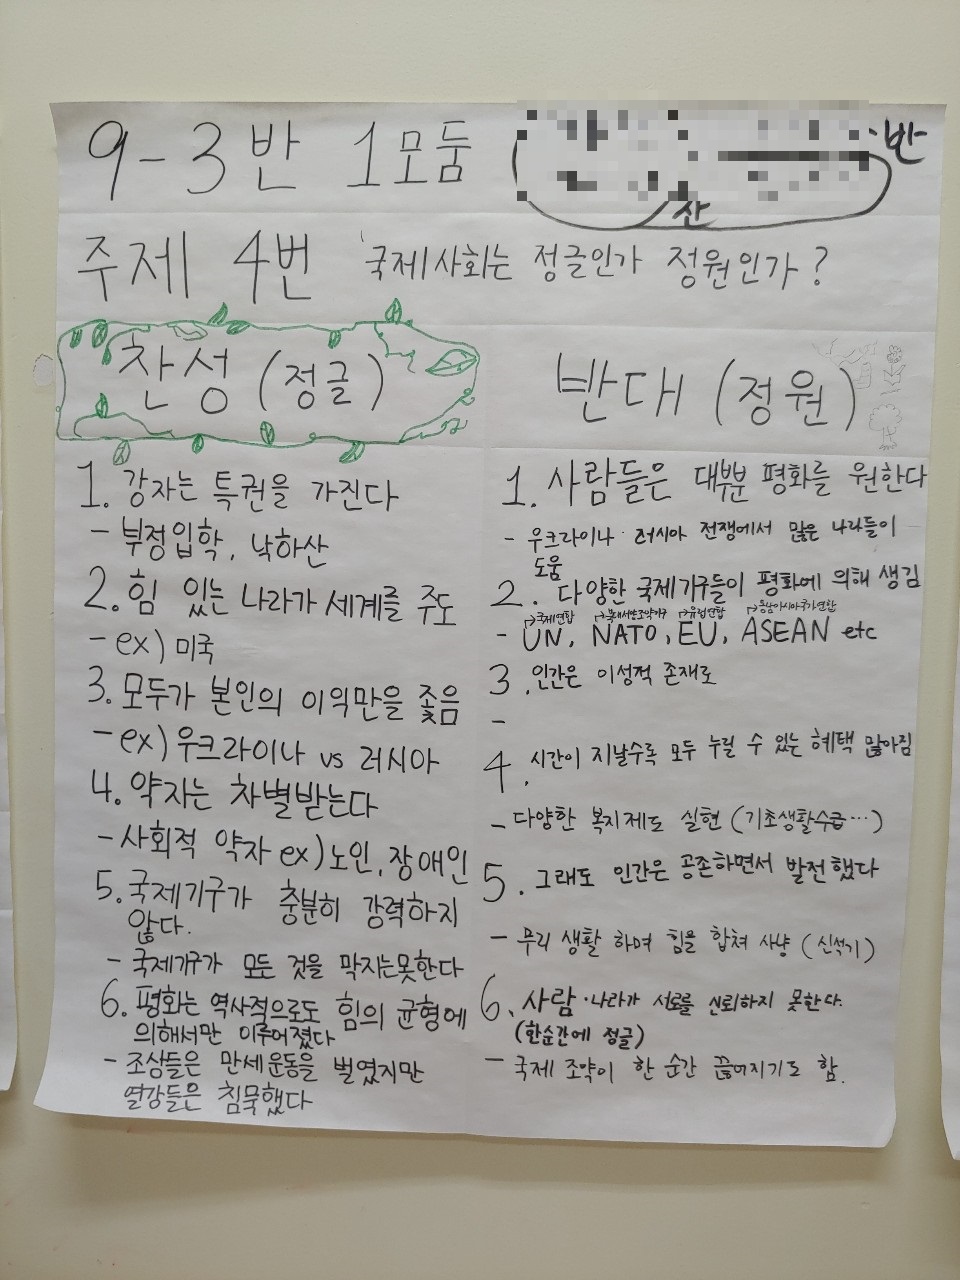 9-3반 1모둠
·반
산
주제 4번 '국제사회는 정글인가 정원인가?
찬성 (정글)
1. 강자는 특권을 가진다
- 부정입학, 낙하산
2. 힘 있는 나라가 세계를 주도
- ex) 미국
3. 모두가 본인의 이익만을 좇음
- ex) 우크라이나 vs 러시아
4. 약자는 차별받는다
- 사회적 약자 ex) 노인, 장애인
5. 국제기구가 충분히 강력하지
않다.
- 국제기구가 모든 것을 막지는못한다
6. 평화는 역사적으로도 힘의 균형에
의해서만 이루어졌다
- 조상들은 만세운동을 벌였지만
열강들은 침묵했다
반대 (정원)
1. 사람들은 대부분 평화를 원한다
- 우크라이나·러시아 전쟁에서 많은 나라들이
도움
2. 다양한 국제기구들이 평화에 의해 생김
→국제연합 →북대서양조약기구 →유럽연합 →동남아시아국가연합
- UN, NATO, EU, ASEAN etc
3. 인간은 이성적 존재로
-
4. 시간이 지날수록 모두 누릴 수 있는 혜택 많아짐
- 다양한 복지제도 실현 (기초생활수급…)
5. 그래도 인간은 공존하면서 발전했다
- 무리 생활 하며 힘을 합쳐 사냥 (신석기)
6. 사람·나라가 서로를 신뢰하지 못한다.
(한순간에 정글)
- 국제 조약이 한 순간 끊어지기도 함.